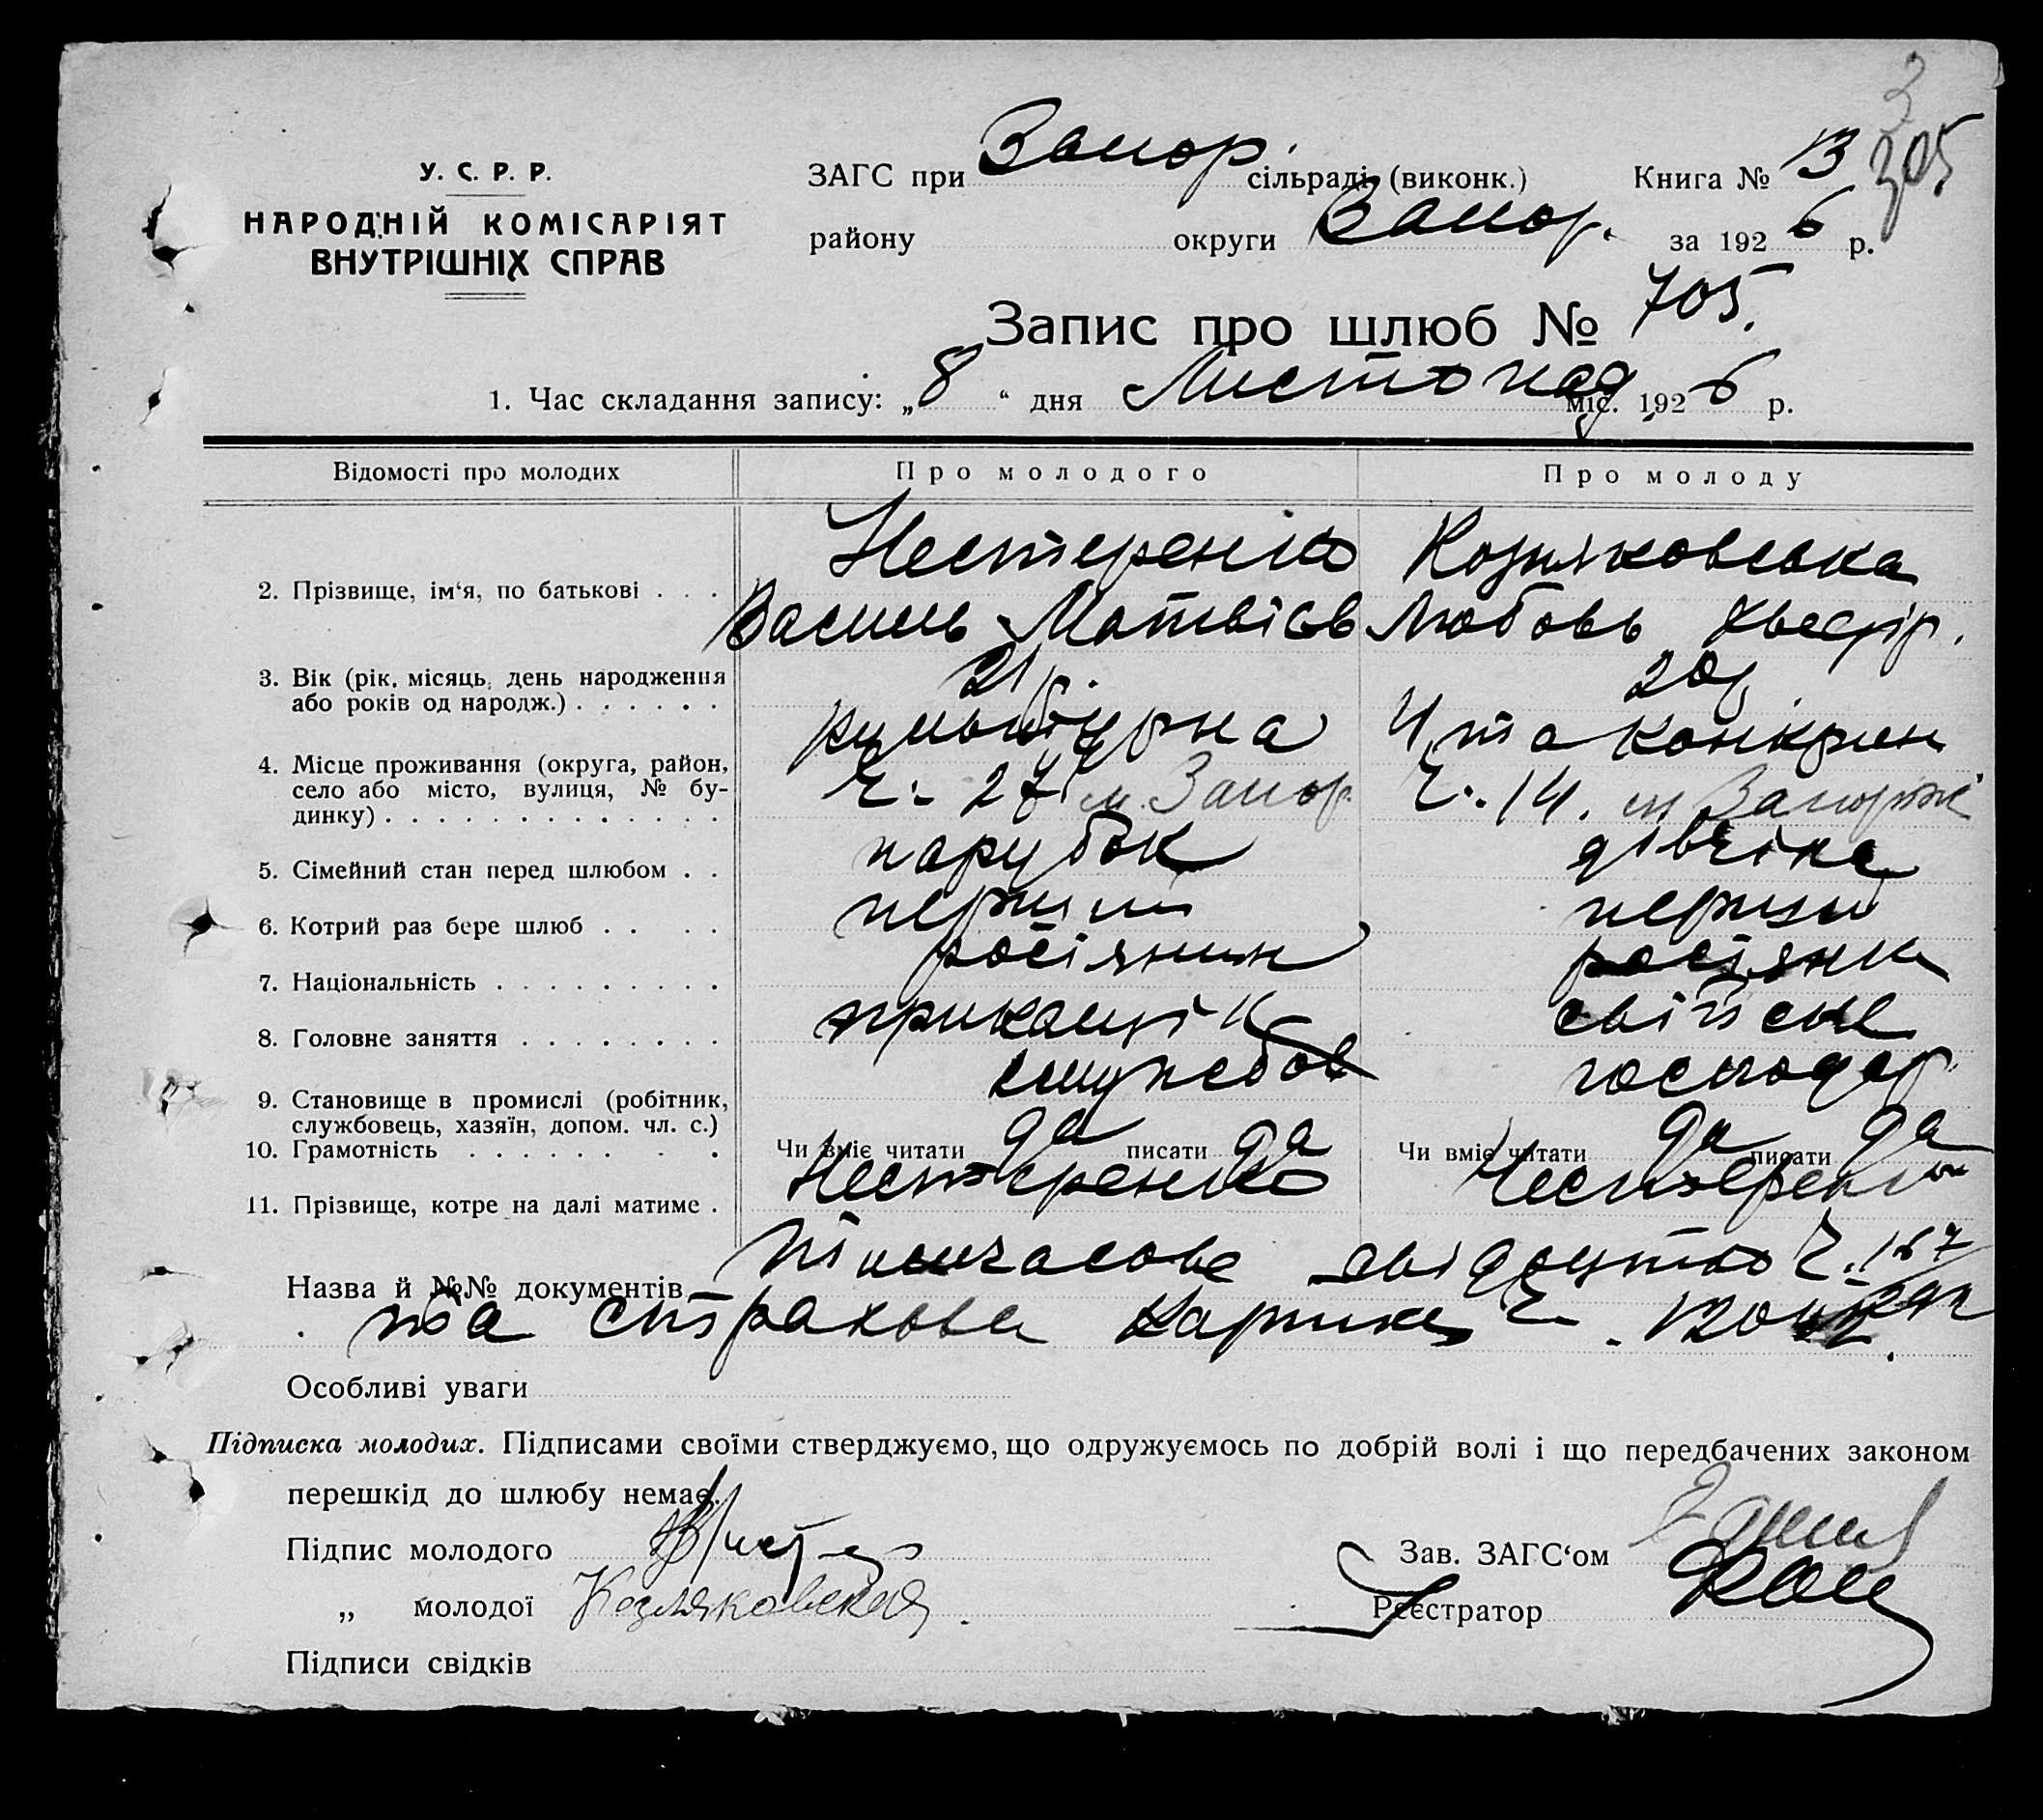 3
305
У. С. Р. Р.
НАРОДНІЙ КОМІСАРІЯТ
ВНУТРІШНІХ СПРАВ
ЗАГС при Запор. сільраді (виконк.) Книга № 13
району округи Запор. за 1926 р.
Запис про шлюб № 705.
1. Час складання запису: „8“ дня Листопад міс. 1926 р.
Відомості про молодих Про молодого Про молоду
Нестеренко Козляковська
2. Прізвище, ім‘я, по батькові . . . Василь Матвієв Любовь
3. Вік (рік, місяць, день народження 21 р. 20 р.
або років од народж.) . . . . . .
4. Місце проживання (округа, район,
село або місто, вулиця, № бу- Ч. 27 м. Запор. Ч. 14. м Запоріж
динку) . . . . . . . . . . . . . .
5. Сімейний стан перед шлюбом . . парубок дівчина
6. Котрий раз бере шлюб . . . . перший перший
7. Національність . . . . . . . . . росіянин росіянка
8. Головне заняття . . . . . . . . прикащік свійське
службов господар.
9. Становище в промислі (робітник,
службовець, хазяїн, допом. чл. с.)
10. Грамотність . . . . . . . . Чи вміє читати да писати да Чи вміє читати да писати да
11. Прізвище, котре на далі матиме . Нестеренко Нестеренко
Назва й №№ документів тімчасове свідоцтво Ч. 167
та страхова картка Ч.
Особливі уваги
Підписка молодих. Підписами своїми стверджуємо, що одружуємось по добрій волі і що передбачених законом
перешкід до шлюбу немає.
Підпис молодого
Зав. ЗАГС‘ом
„ молодої Козляковская
Реєстратор
Підписи свідків